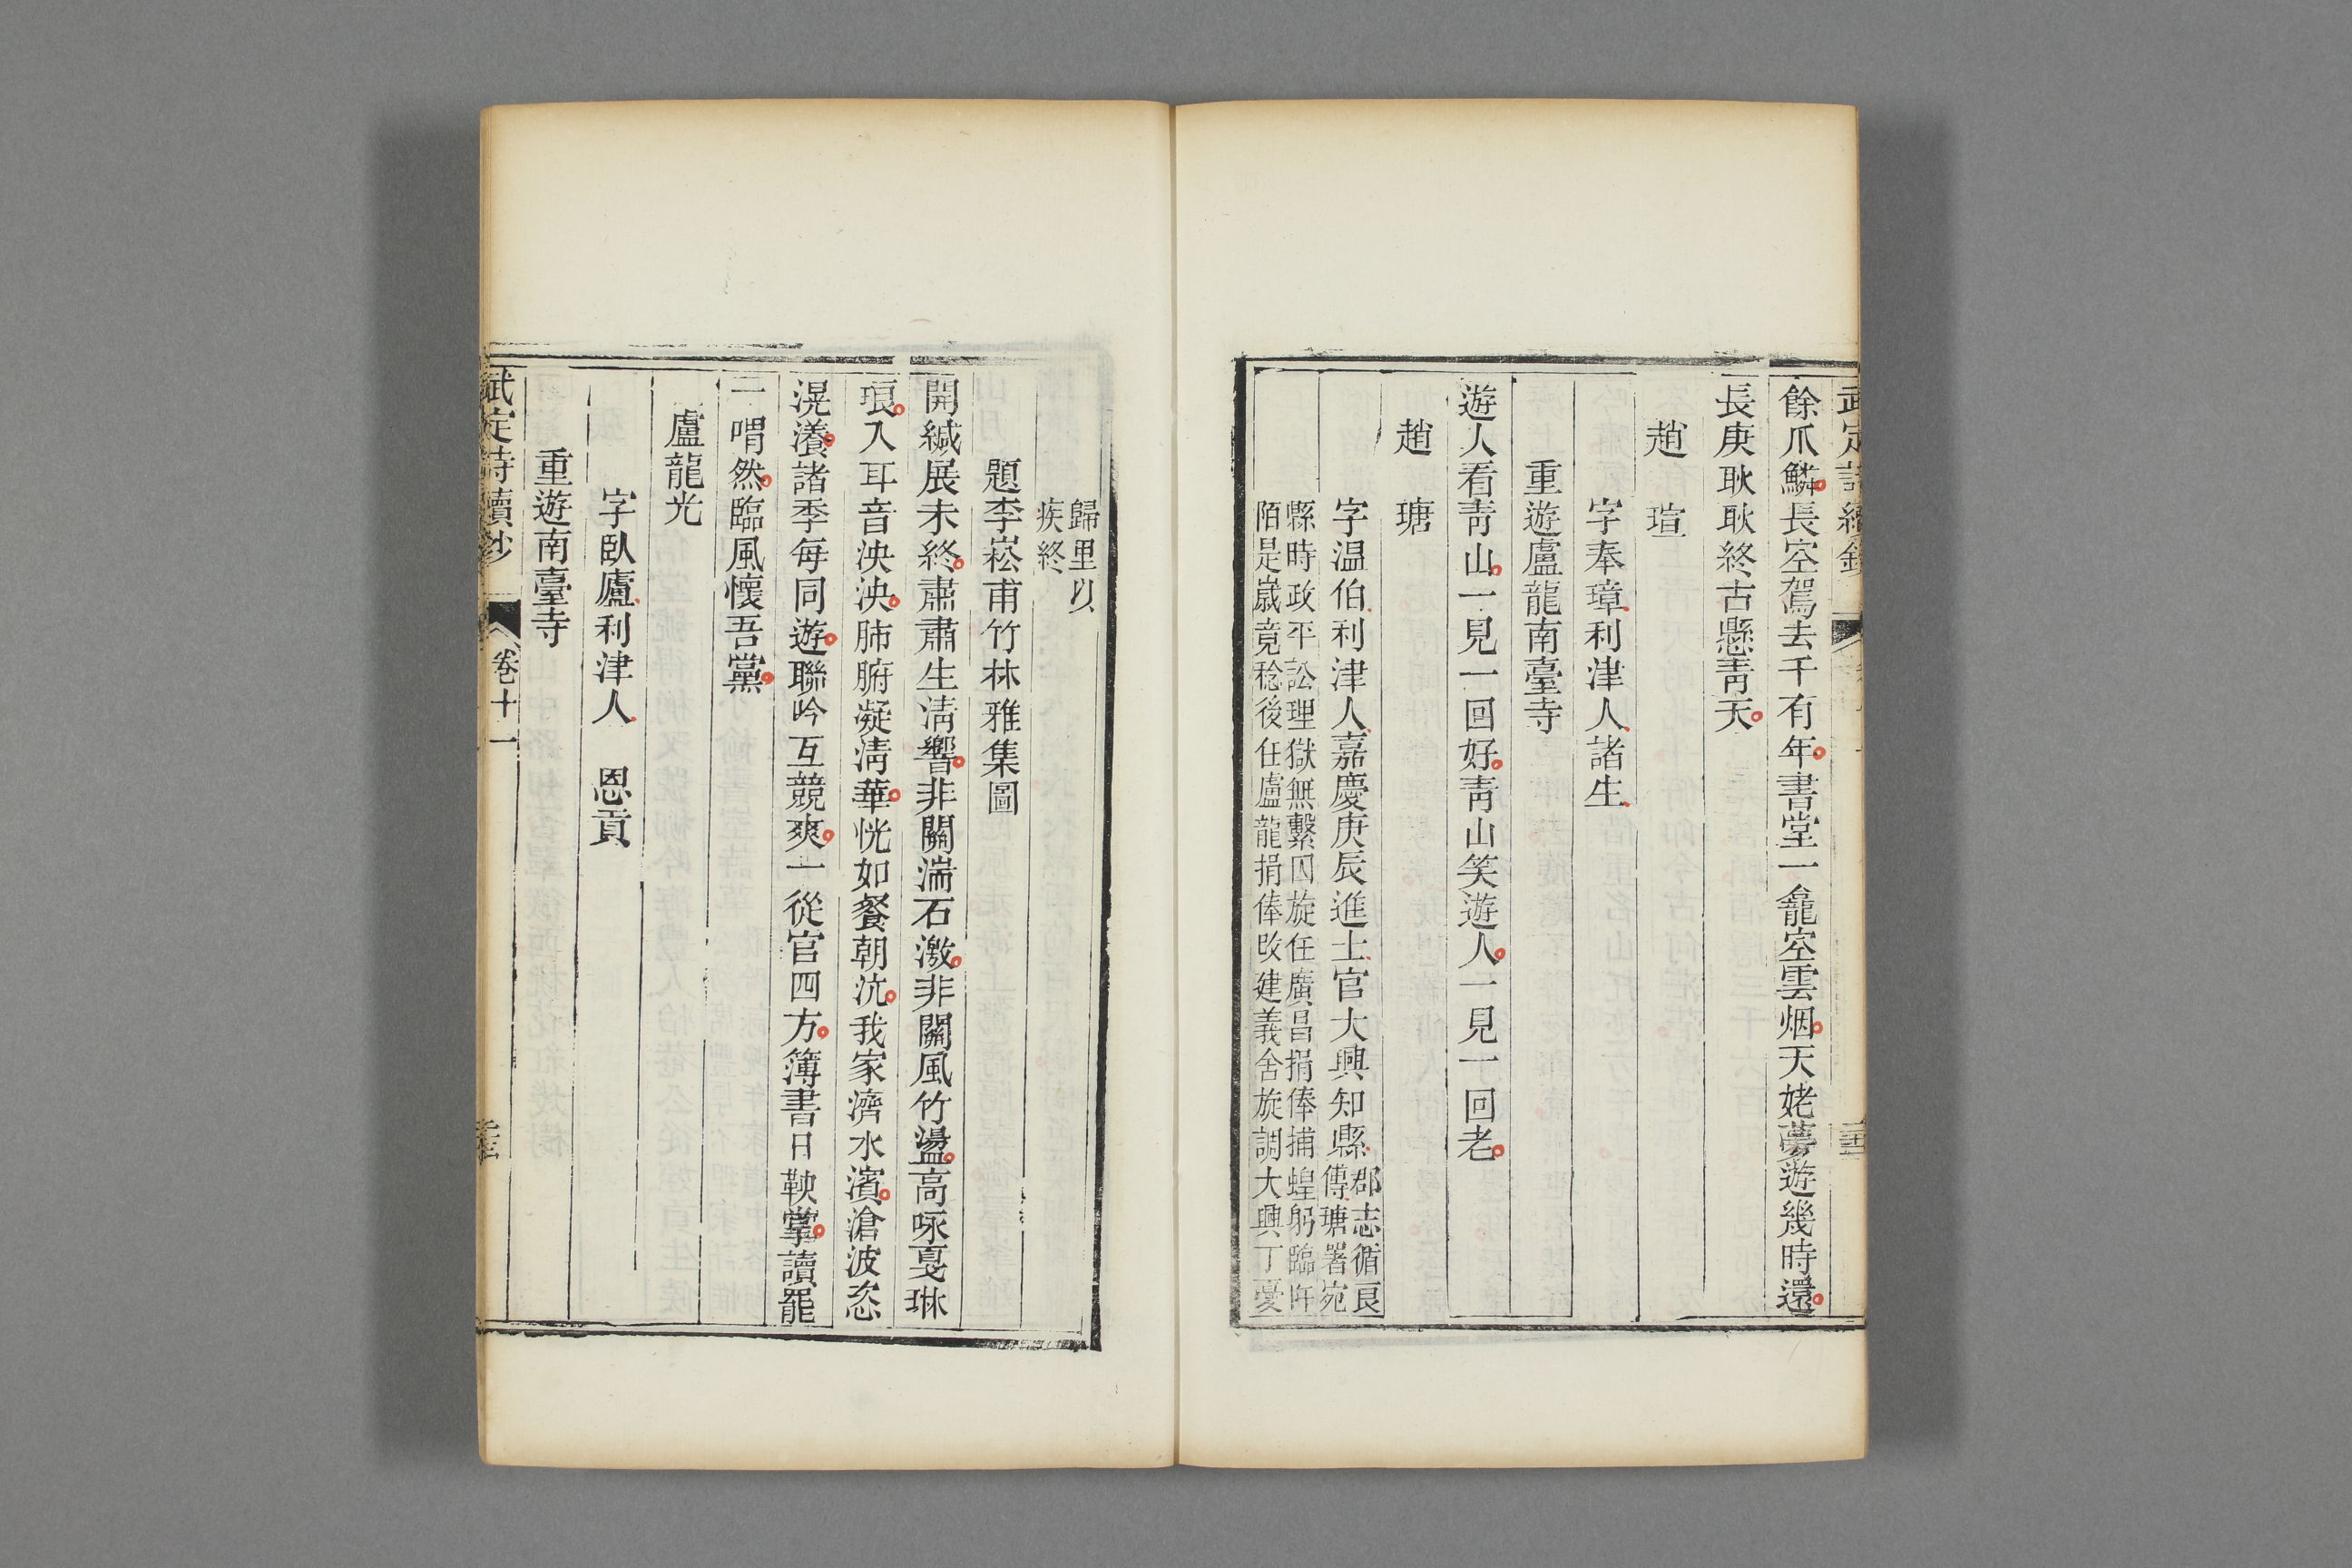 餘爪鱗長空駕去千有年書堂一龕空雲烟天姥夢遊幾時還
長庚耿耿終古懸靑天
趙瑄
字奉璋利津人諸生
重遊盧龍南臺寺
遊人看靑山一見一回好靑山笑遊人一見一回老
趙瑭
字温伯利津人嘉慶庚辰進士官大興知縣
郡志循良
傳瑭署宛
縣時政平訟理獄無繫囚旋任廣昌捐俸捕蝗躬臨阡
陌是嵗竟稔後任盧龍捐俸改建義舍旋調大興丁憂
歸里以
疾終
題李崧甫竹林雅集圖
開緘展未終肅肅生淸響非關湍石激非關風竹盪高咏戛琳
琅入耳音泱泱肺腑凝淸華恍如餐朝沆我家濟水濱滄波恣
滉瀁諸季每同遊聯吟互競爽一從官四方簿書日鞅掌讀罷
一喟然臨風懷吾黨
盧龍光
字臥廬利津人 恩貢
重遊南臺寺
武定詩續鈔 卷十一